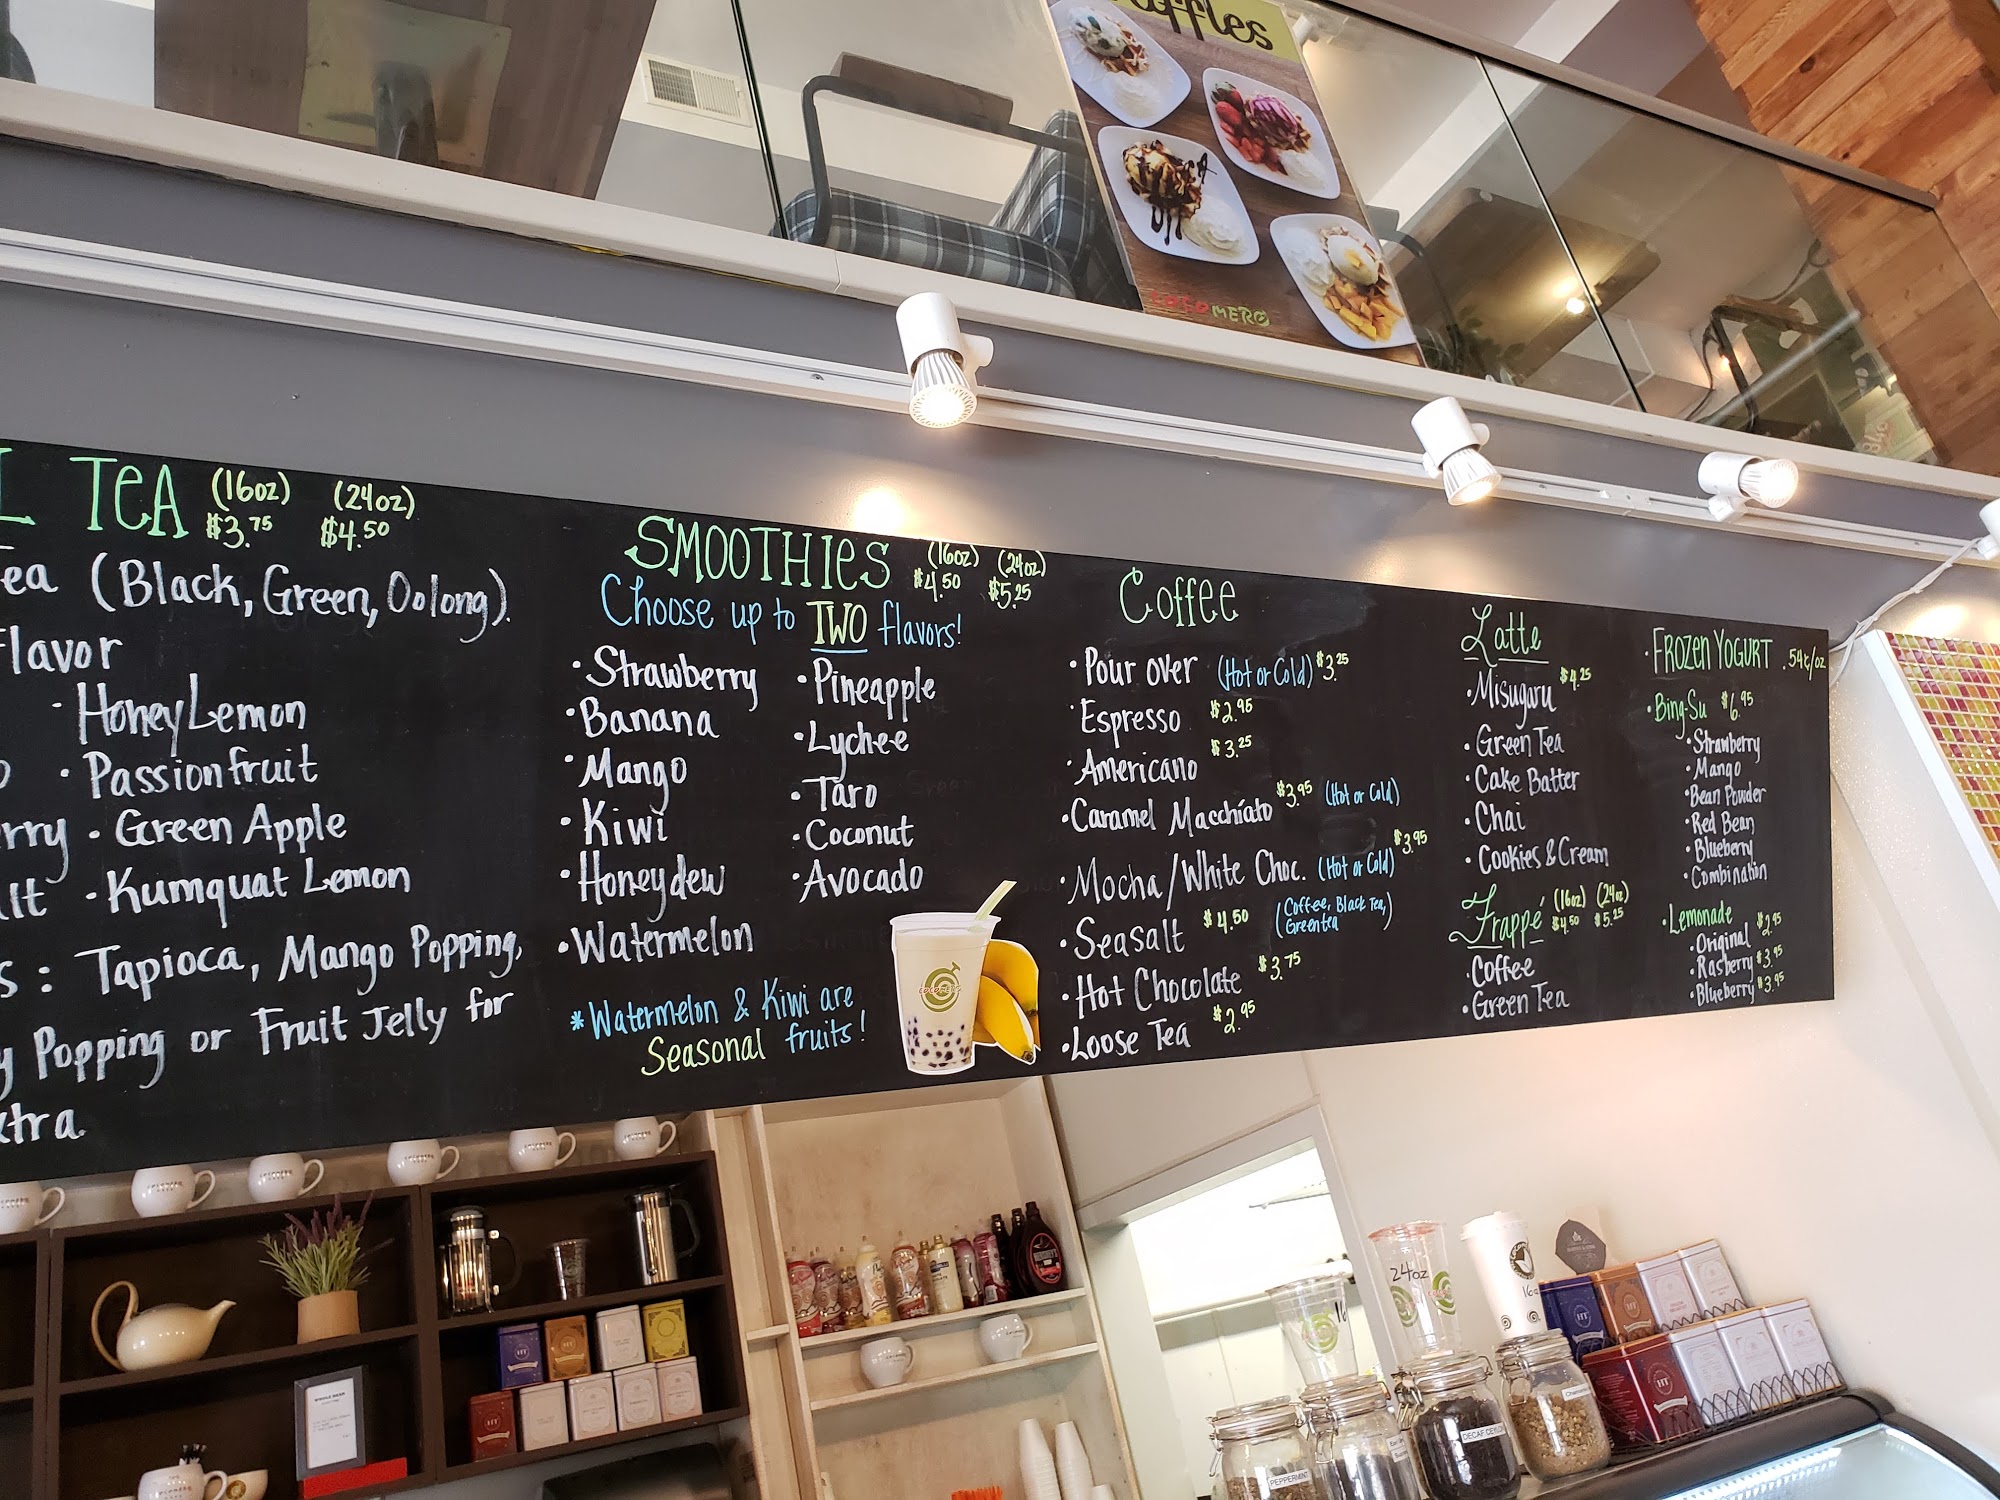 COCOMERO
TEA (16oz) (24oz)
$3.75 $4.50
(Black, Green, Oolong).
Flavor
· Honey Lemon
· Passionfruit
· Green Apple
· Kumquat Lemon
: Tapioca, Mango Popping,
Popping or Fruit Jelly for
SMOOTHIES (16oz) (24oz)
$4.50 $5.25
Choose up to TWO flavors!
· Strawberry
· Banana
· Mango
· Kiwi
· Honeydew
· Watermelon
· Pineapple
· Lychee
· Taro
· Coconut
· Avocado
* Watermelon & Kiwi are
Seasonal fruits!
Coffee
· Pour over (Hot or Cold) $3.25
· Espresso $2.95
· Americano $3.25
· Caramel Macchiato $3.95 (Hot or Cold)
· Mocha/White Choc. (Hot or Cold) $3.95
· Seasalt $4.50 (Coffee, Black Tea,
Greentea)
· Hot Chocolate $3.75
· Loose Tea $2.95
Latte
· Misugaru $4.25
· Green Tea
· Cake Batter
· Chai
· Cookies & Cream
Frappé (16oz) (24oz)
$4.50 $5.25
· Coffee
· Green Tea
· FROZEN YOGURT .54¢/oz
· Bing-Su $6.95
· Strawberry
· Mango
· Bean Powder
· Red Bean
· Blueberry
· Combination
· Lemonade
· Original $2.95
· Rasberry $3.95
· Blueberry $3.95
24oz
16
PEPPERMINT
DECAF CEYLON
HT
HT
HT